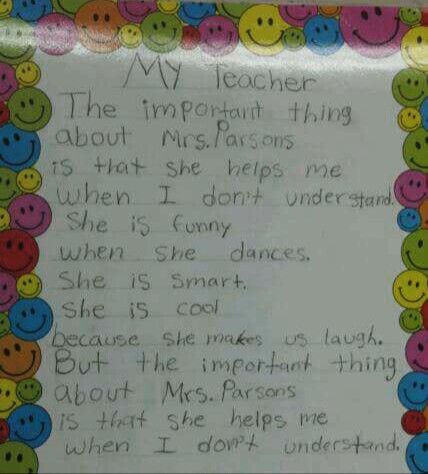 My Teacher
The important thing
about Mrs. Parsons
is that she helps me
when I don't understand.
She is funny
when she dances.
She is smart.
She is cool
because she makes us laugh.
But the important thing
about Mrs. Parsons
is that she helps me
when I don't understand.